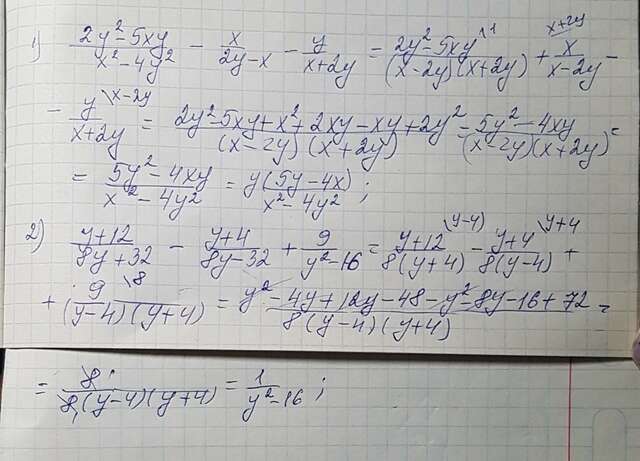 1) (2y²-5xy)/(x²-4y²) - x/(2y-x) - y/(x+2y) = (2y²-5xy)\¹/((x-2y)(x+2y)) + x\ˣ⁺²ʸ/(x-2y) -
- y\ˣ⁻²ʸ/(x+2y) = (2y²-5xy+x²+2xy-xy+2y²)/((x-2y)(x+2y)) = (5y²-4xy)/((x-2y)(x+2y)) =
= (5y²-4xy)/(x²-4y²) = y(5y-4x)/(x²-4y²);
2) (y+12)/(8y+32) - (y+4)/(8y-32) + 9/(y²-16) = (y+12)\⁽ʸ⁻⁴⁾/(8(y+4)) - (y+4)\ʸ⁺⁴/(8(y-4)) +
+ 9\⁸/((y-4)(y+4)) = (y²-4y+12y-48-y²-8y-16+72)/(8(y-4)(y+4)) =
= 8/(8(y-4)(y+4)) = 1/(y²-16);